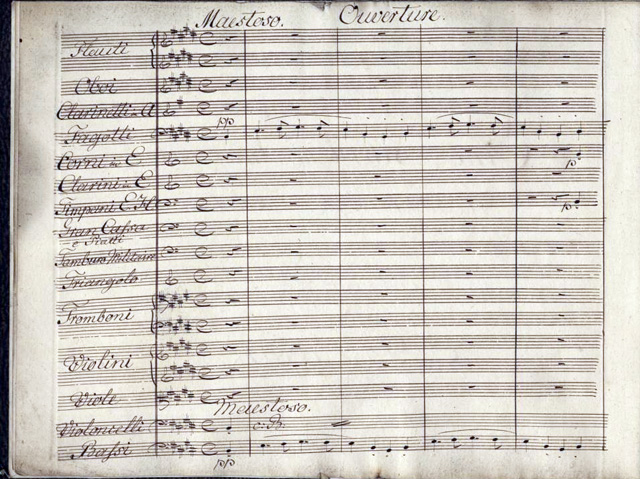 Maestoso. Ouverture.
Flauti
Oboi
Clarinetti in A
pp
Fagotti
Corni in E
p
Clarini in E
Timponi E. H
p
Gran Cassa
e Piatti
Tamburo Militaire
Triangolo
Tromboni
Violini
Viole
Maestoso.
Violoncelli
c: B.
Bassi
pp